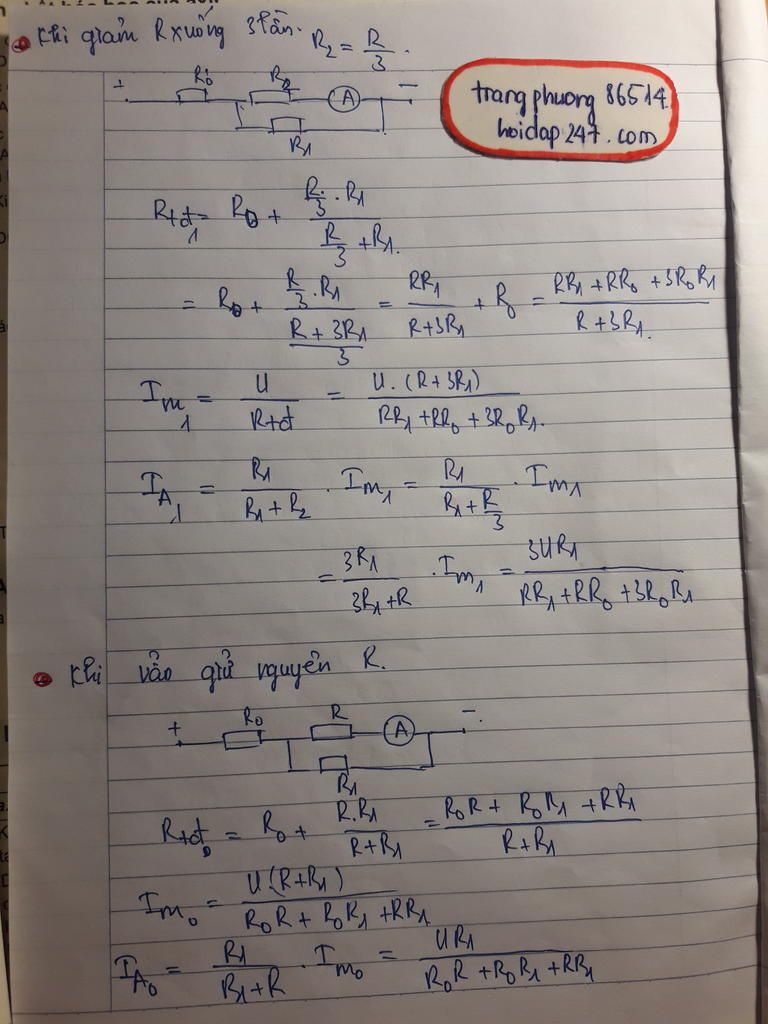 Khi giảm R xuống 3 lần. R₂ = R/3.
+ R₀ R₂ A −
R₁
trangphuong 86514.
hoidap247.com
Rtđ₁ = R₀ + (R/3 . R₁)/(R/3 + R₁).
= R₀ + (R/3 . R₁)/((R + 3R₁)/3) = RR₁/(R+3R₁) + R₀ = (RR₁ + RR₀ + 3R₀R₁)/(R + 3R₁).
Im₁ = U/Rtđ = U.(R+3R₁)/(RR₁ + RR₀ + 3R₀R₁).
IA₁ = R₁/(R₁ + R₂) . Im₁ = R₁/(R₁ + R/3) . Im₁
= 3R₁/(3R₁ + R) . Im₁ = 3UR₁/(RR₁ + RR₀ + 3R₀R₁)
Khi vẫn giữ nguyên R.
+ R₀ R A −.
R₁
Rtđ₀ = R₀ + R.R₁/(R+R₁) = (R₀R + R₀R₁ + RR₁)/(R+R₁)
Im₀ = U.(R+R₁)/(R₀R + R₀R₁ + RR₁)
IA₀ = R₁/(R₁+R) . Im₀ = UR₁/(R₀R + R₀R₁ + RR₁)